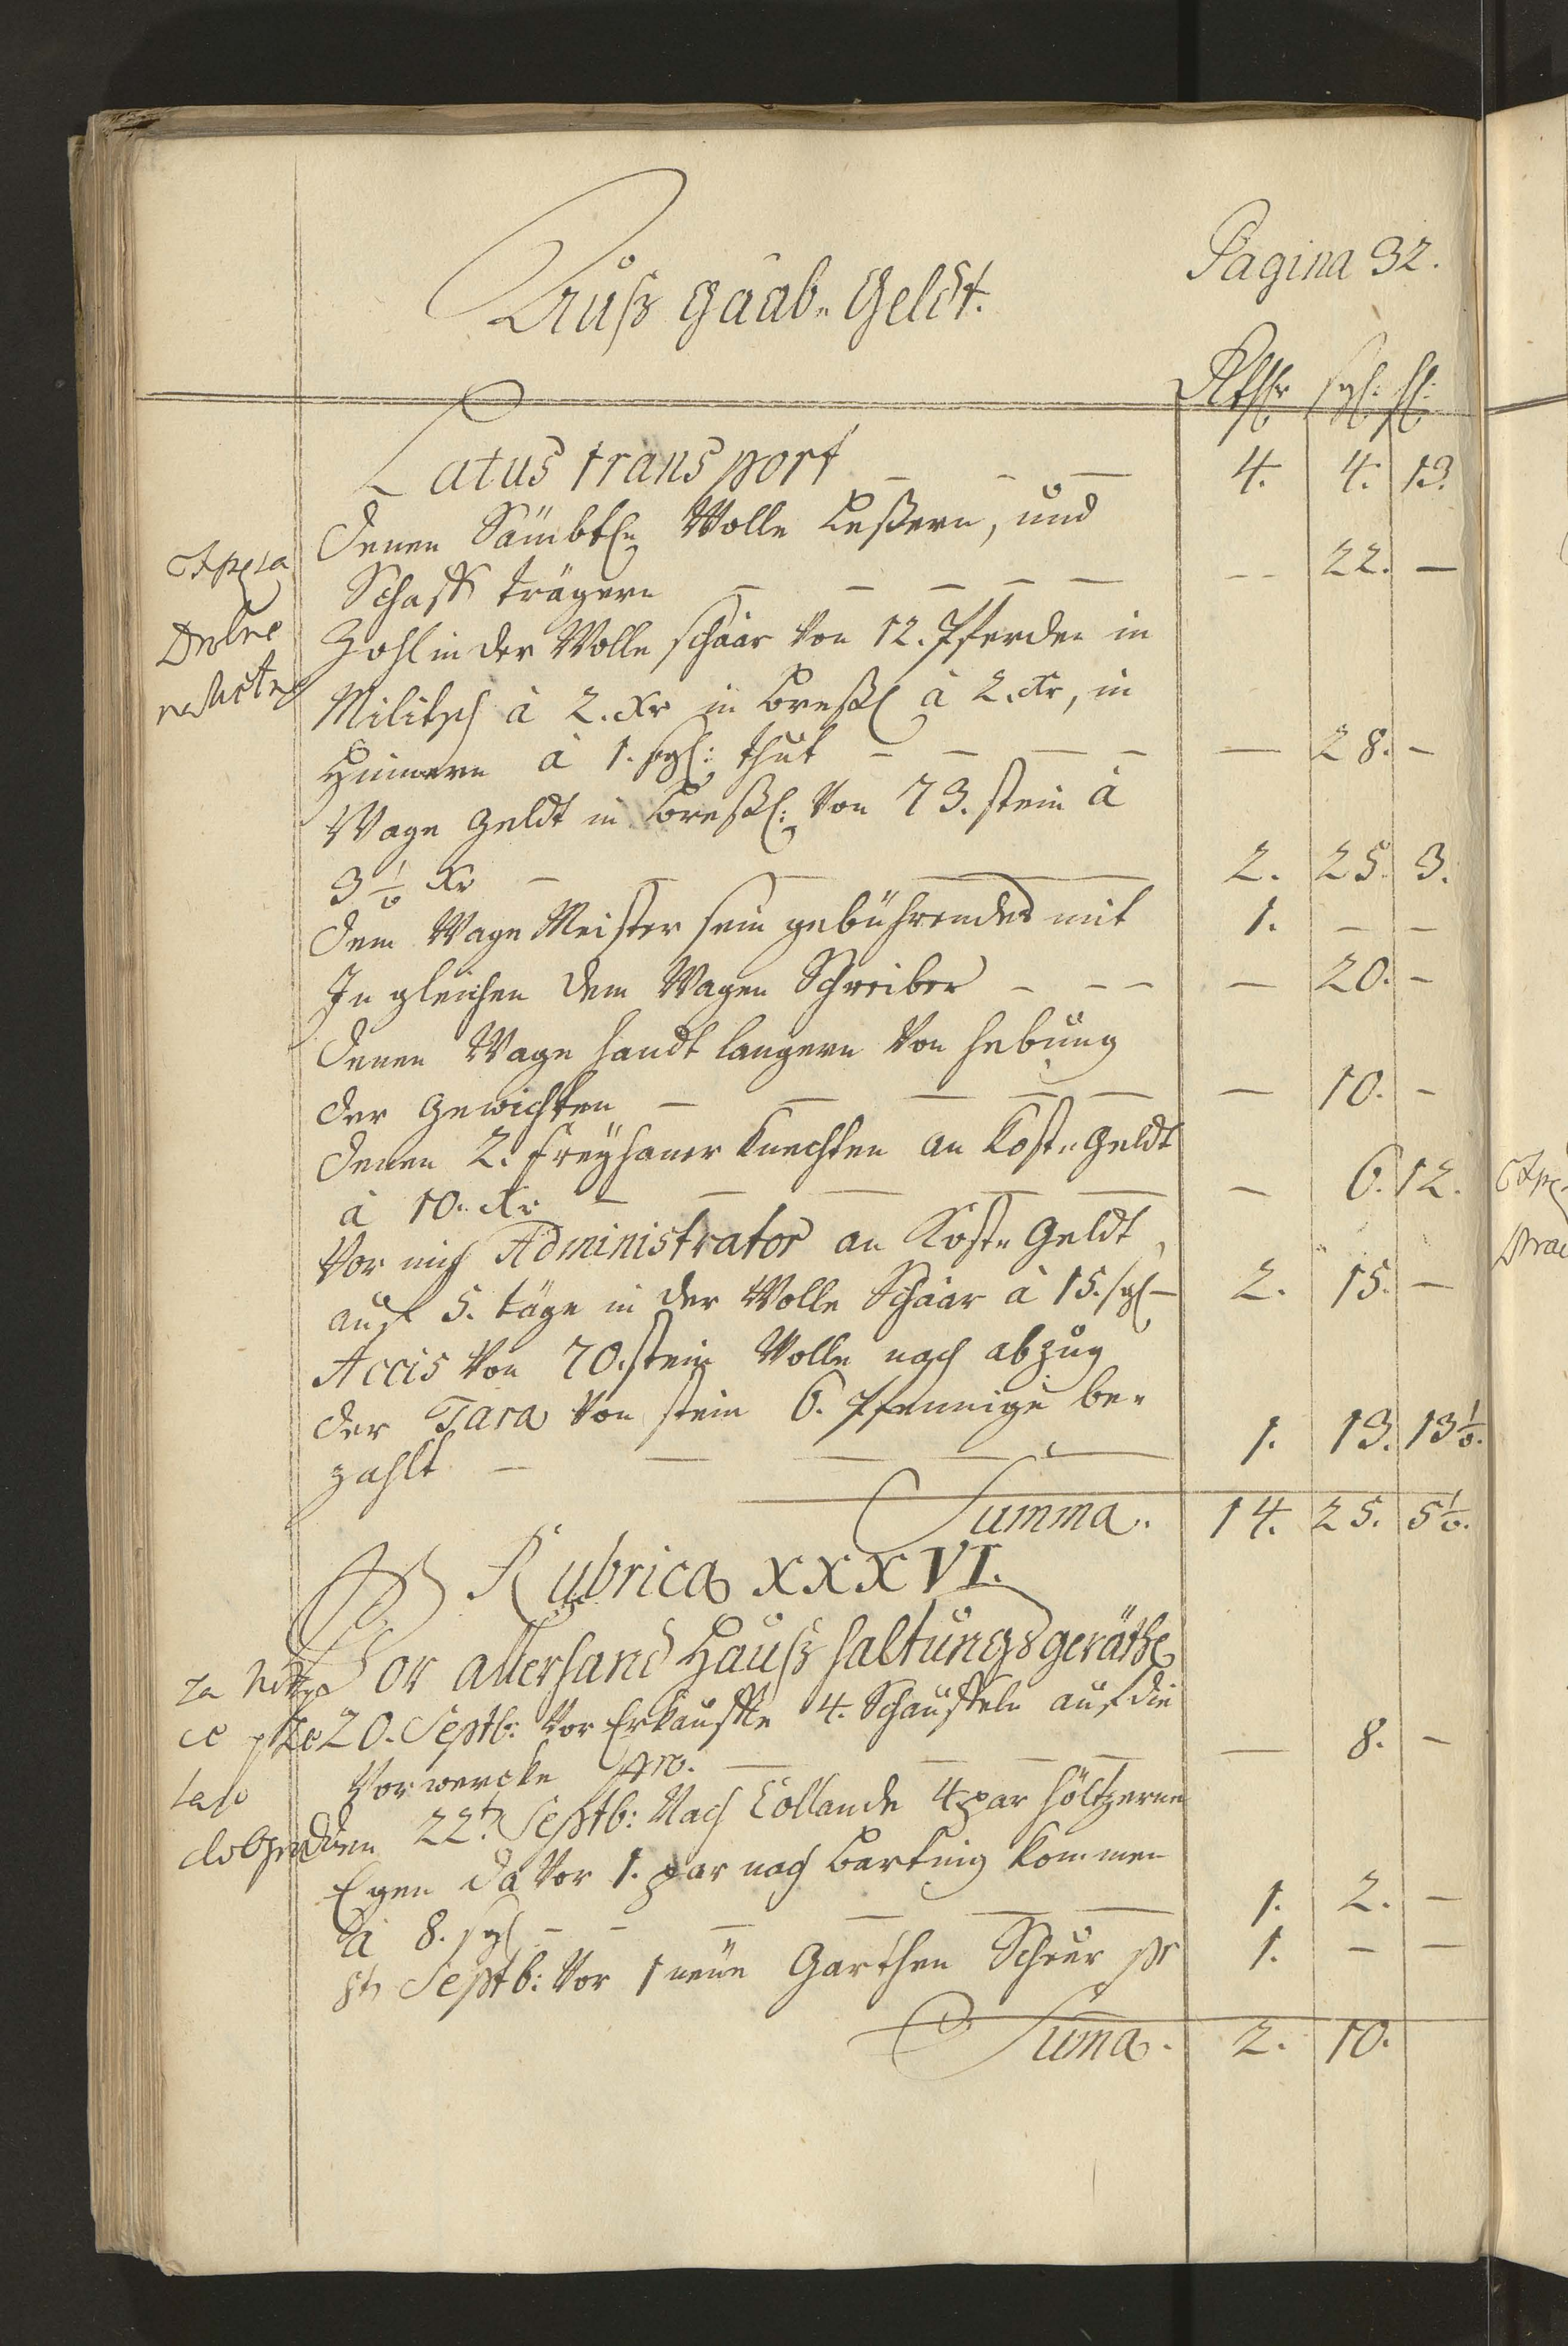 Pagina 32.
Auß gaab= Geldt.
Rthlr sgl: hl:
Latus transport – – – 4. 4. 13.
denen Sämbtl: Wolle Leßern, und
Schaff trägern – – – – – -- 22. –
Zohl in der Wolle schaar Von 12. Pferden in
Militsch à 2. Xr in Breßl à 2. Xr, in
Hünnern à 1. sgl: thut – – – – — 28. –
Wage Geldt in Breßl: Von 73. stein à
3½ Xr – – – – 2. 25. 3.
dem Wage Meister sein gebührendes mit 1. – –
In gleichen dem Wagen Schreiber – – – — 20. –
denen Wage handt langern Von hebung
der Gewichten – – – – – — 10. –
denen 2. Freyhaner Knechten an Kost= Geldt
à 10. Xr – – – – – — 6. 12.
Vor mich Administrator an Kost= Geldt
auf 5. täge in der Wolle Schaar à 15. sgl – 2. 15. –
Accis Von 70. stein Wolle nach abzug
der Tara Von stein 6. Pfennige be=
zahlt – – – – – 1. 13. 13½.
Summa. 14. 25. 5½.
Rubrica XXXVI.
Vor allerhand Haußhaltungs geräthe
20. Septb: Vor Erkauffte 4. Schauffeln auf die
Vorwercke pro. – – – – — 8. –
den 22t Septb: Nach Collande 4 par höltzerne
Egen da Vor 1. par nach Barting kommen
à 8. sgl – – – – – 1. 2. –
Septb: Vor 1 neüe Garthen Scheer pr 1. – –
Suma. 2. 10.